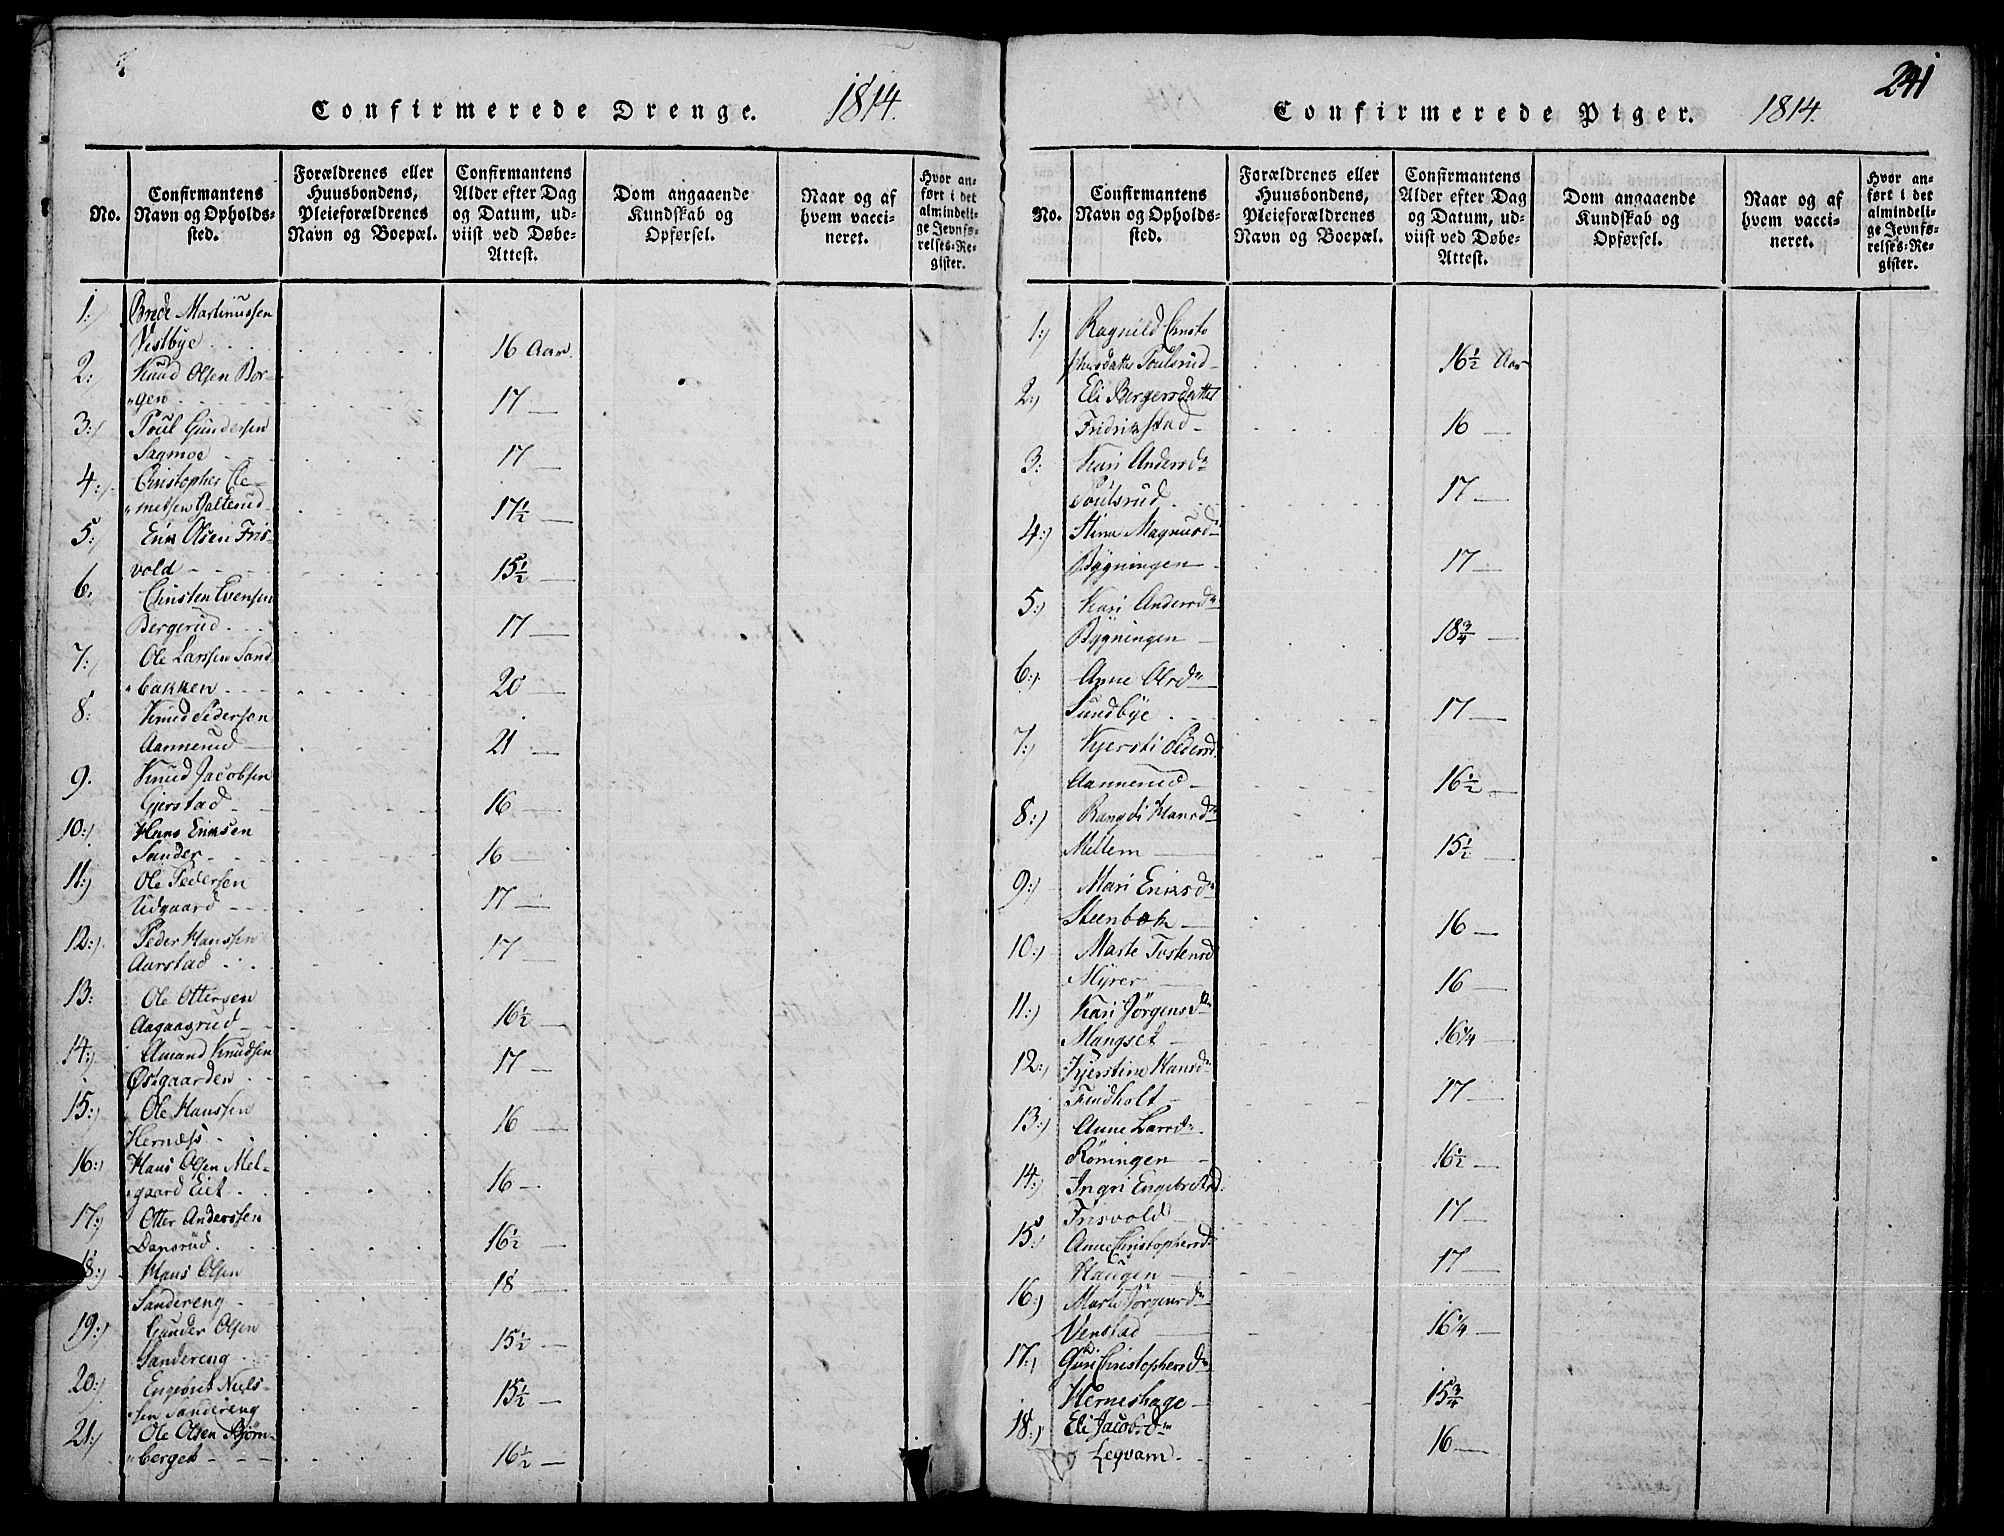 Confirmerede Drenge. 1814.
No.
Confirmantens Navn og Opholds-sted.
Forældrenes eller Huusbondens, Pleieforældrenes Navn og Boepæl.
Confirmantens Alder efter Dag og Datum, ud-viist ved Døbe-Attest.
Dom angaaende Kundskab og Opførsel.
Naar og af hvem vacci-neret.
Hvor an-ført i det almindeli-ge Jevnfø-relses-Re-gister.
1:) Brede Martinussen
Vestbye 16 Aar.
2:) Knud Olsen Bor-
"gen 17 —
3:) Poul Gundersen
Sagmoe 17 —
4:) Christopher Cle-
"metsen Galterud 17½ —
5:) Erik Olsen Fris-
vold 15½ —
6: Christen Evensen
Bergerud 17 —
7:) Ole Larssen Sand
"bakken 20 —
8: Knud Pedersen
Aannerud 21 —
9. Knud Jacobsen
Gjerstad 16 —
10:) Hans Eriksen
Sander 16 —
11:) Ole Pedersen
Udgaard 17 —
12:) Peder Hanssen
Aarstad 17 —
13: Ole Ottersen
Aagaasrud 16½ —
14:) Amund Knudsen
Østgaarden 17 —
15:) Ole Hanssen
Hernæss 16 —
16:) Hans Olsen Mel-
"gaard Eiet 16 —
17:) Otter Anderssen
Dansrud 16½ —
18:) Hans Olsen
Sandereng 18 —
19:) Gunder Olsen
Sandereng 15½ —
20:) Engebret Niels-
"sen Sandereng 15½ —
21:) Ole Olsen Bjørn-
"berget 16½ —
241
Confirmerede Piger. 1814.
No.
Confirmantens Navn og Opholds-sted.
Forældrenes eller Huusbondens, Pleieforældrenes Navn og Boepæl.
Confirmantens Alder efter Dag og Datum, ud-viist ved Døbe-Attest.
Dom angaaende Kundskab og Opførsel.
Naar og af hvem vacci-neret.
Hvor an-ført i det almindeli-ge Jevnfø-relses-Re-gister.
1:) Ragnild Christo
phersdatter Poulsrud 16½ Aar
2:) Eli Bergersdatter
Fridrikstad 16 —
3: Kari Andersdr
Poulsrud 17 —
4:) Stine Magnusdr
Bygningen 17 —
5:) Kari Andersdr
Bygningen 18¾ —
6:) Anne Olsdr
Sundbye 17 —
7:) Kjersti Pedersd:
Aannerud 16½ —
8:) Rangdi Hansdr
Mellem 15½ —
9:) Mari Eriksdr
Steenbek 16 —
10:) Marte Tostensd
Myrer 16 —
11:) Kari Jörgensdr
Mangset 16¼ —
12:) Kjerstine Hansdr
Findholt 17 —
13:) Anne Larsdr
Röningen 16½ —
14:) Ingri Engebretsd:
Frisvold 17 —
15:) Anne Christophersd:
Haugen 17 —
16:) Marte Jörgensdr
Venstad 16¼ —
17:) Guri Christophersdr
Herneshage 15¾ —
18:) Eli Jacobsdr
Leqvam 16 —